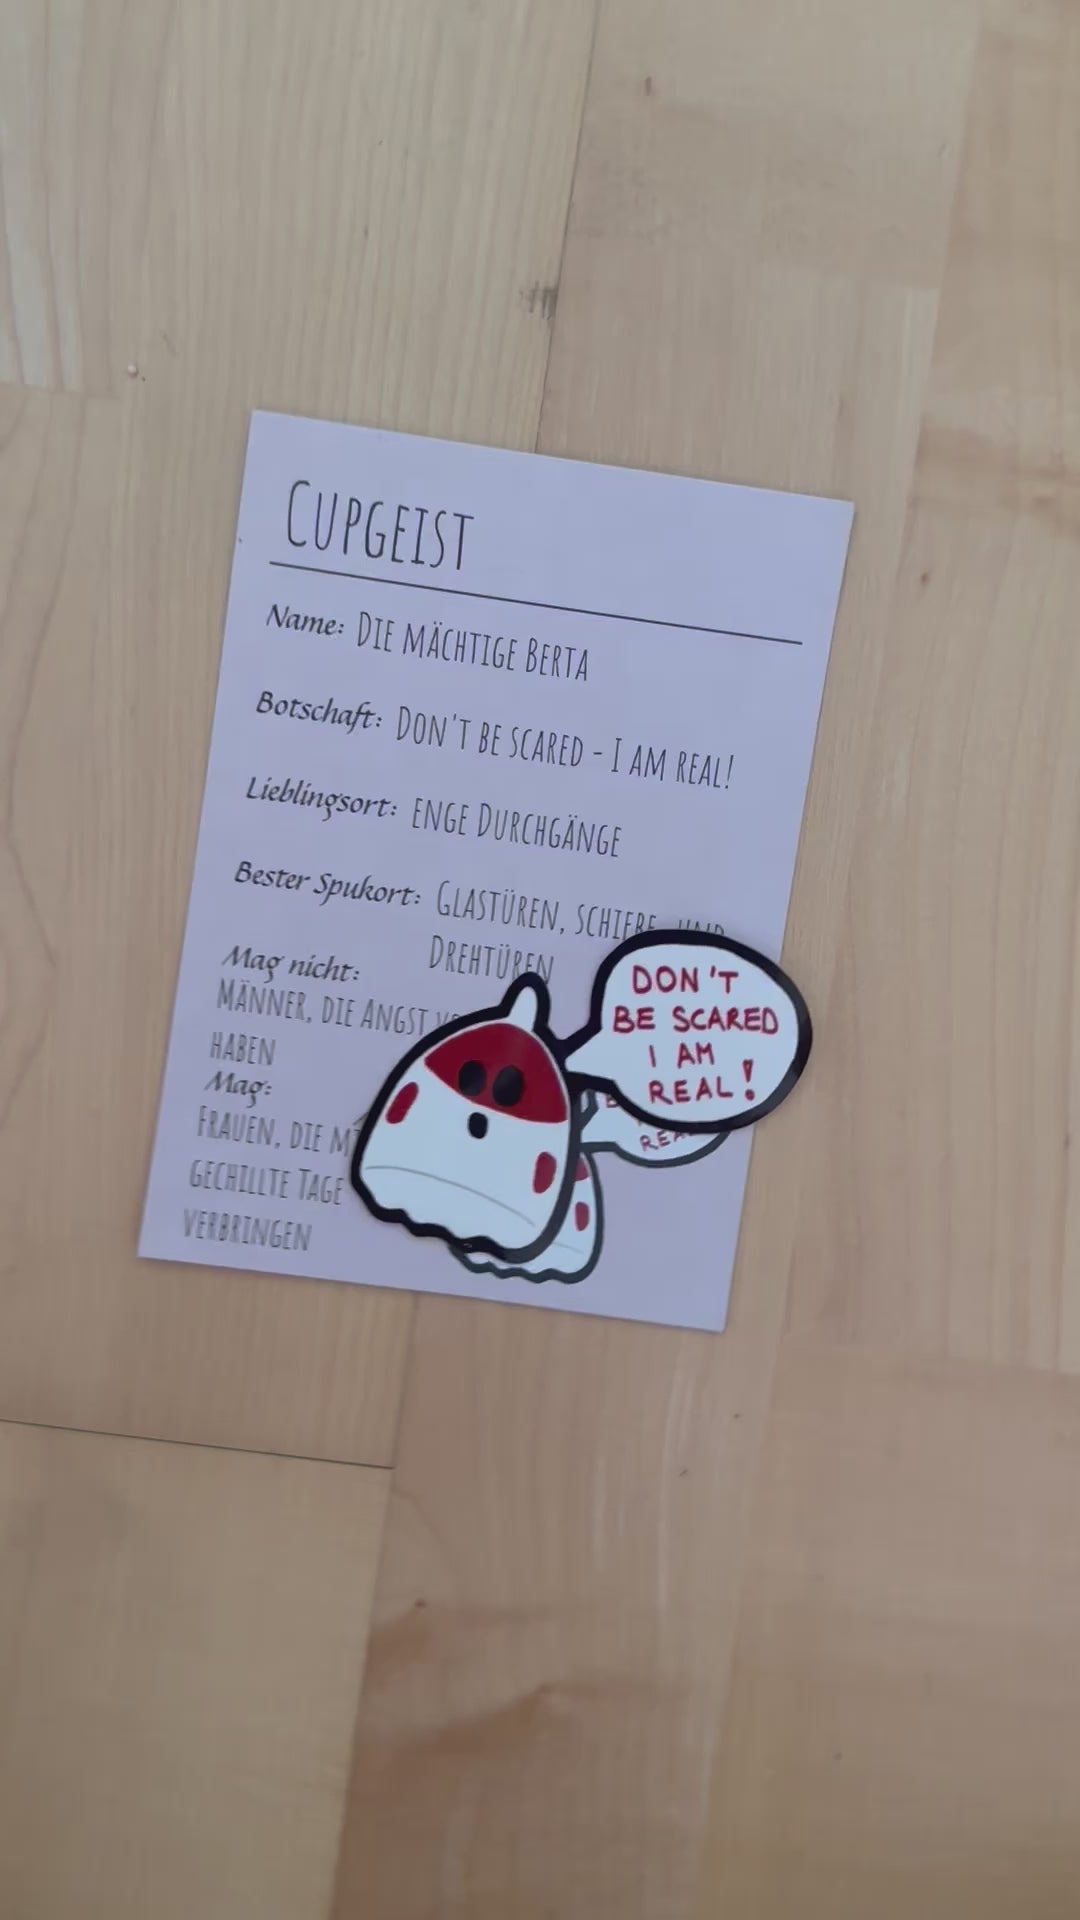 CUPGEIST
Name: DIE MÄCHTIGE BERTA
Botschaft: DON'T BE SCARED - I AM REAL!
Lieblingsort: ENGE DURCHGÄNGE
Bester Spukort: GLASTÜREN, SCHIEBE- UND
DREHTÜREN
Mag nicht:
MÄNNER, DIE ANGST
HABEN
Mag:
FRAUEN, DIE
GECHILLTE TAGE
VERBRINGEN
DON'T
BE SCARED
I AM
REAL!